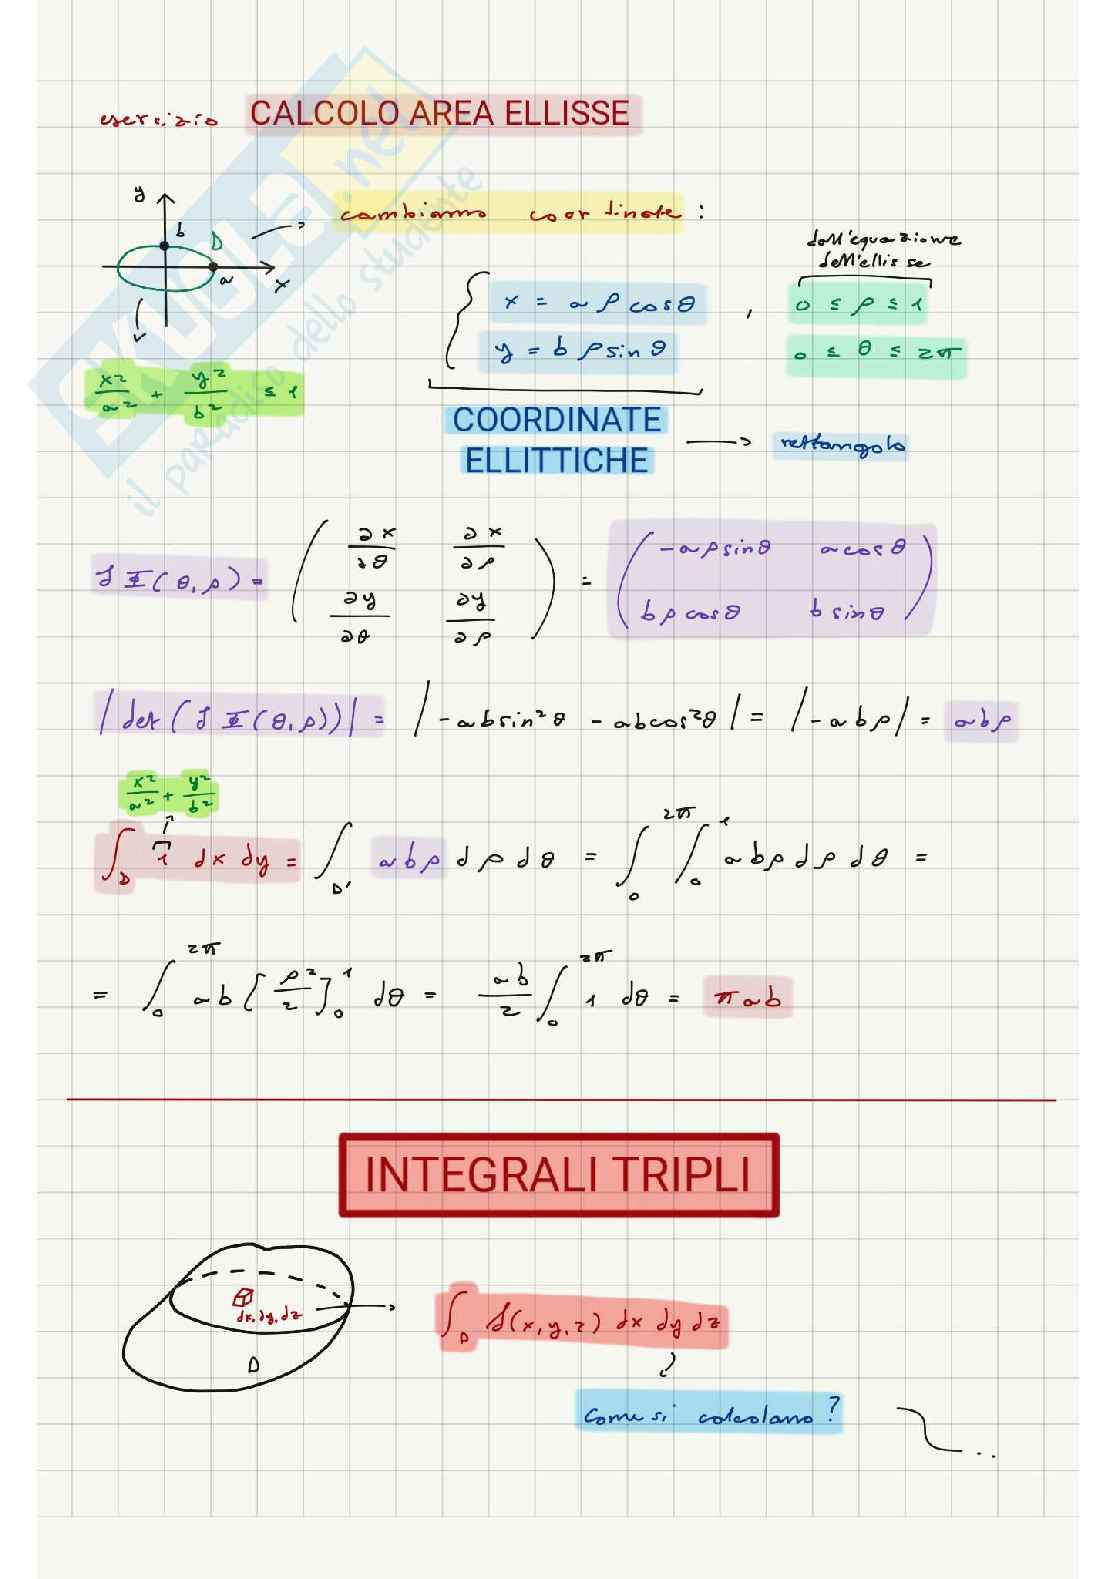 esercizio CALCOLO AREA ELLISSE
SKUOLA.net
il paradiso dello studente
y
b
D
a
x
cambiamo coordinate :
dall'equazione
dell'ellisse
{ x = a ρ cosθ , 0 ≤ ρ ≤ 1
y = b ρ sin θ 0 ≤ θ ≤ 2π
x²/a² + y²/b² ≤ 1
COORDINATE
ELLITTICHE → rettangolo
J Φ(θ,ρ) = ( ∂x/∂θ ∂x/∂ρ ∂y/∂θ ∂y/∂ρ ) = ( -aρsinθ acosθ bρcosθ bsinθ )
|det (J Φ(θ,ρ))| = |-absin²θ - abcos²θ| = |-abρ| = abρ
x²/a² + y²/b²
∫_D 1 dx dy = ∫_D' abρ dρ dθ = ∫_0^2π ∫_0^1 abρ dρ dθ =
= ∫_0^2π ab [ρ²/2]_0^1 dθ = ab/2 ∫_0^2π 1 dθ = πab
INTEGRALI TRIPLI
dx,dy,dz
D
∫_D f(x,y,z) dx dy dz
Come si calcolano? ..